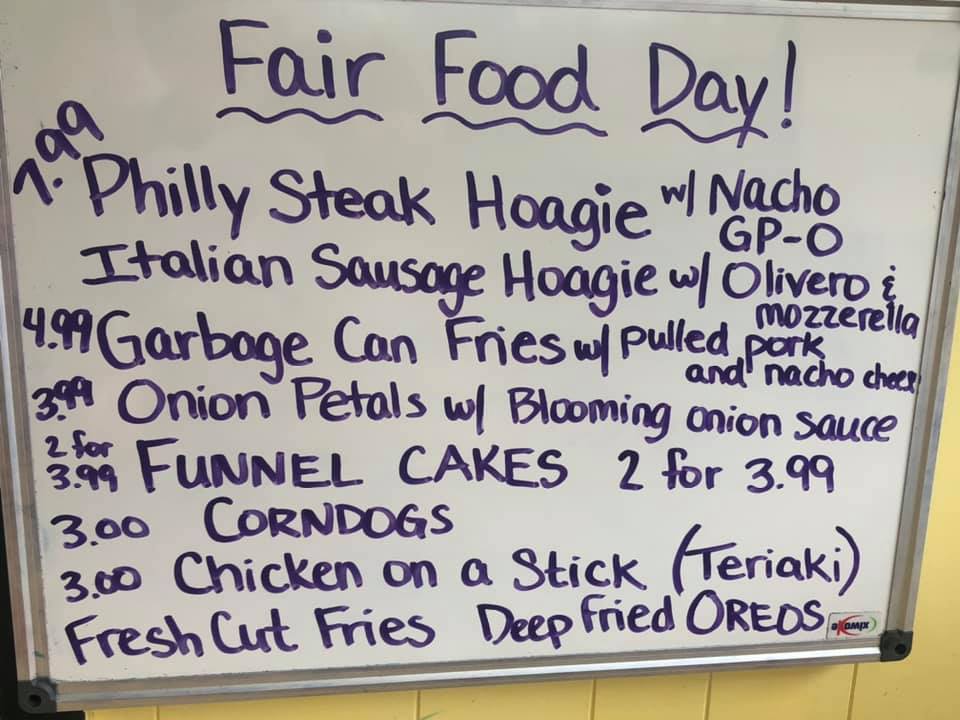 Fair Food Day!
7.99 Philly Steak Hoagie w/ Nacho
GP-O
Italian Sausage Hoagie w/ Olivero &
mozzerella
4.99 Garbage Can Fries w/ pulled pork
and nacho cheese
3.99 Onion Petals w/ Blooming onion sauce
2 for
3.99 FUNNEL CAKES 2 for 3.99
3.00 CORNDOGS
3.00 Chicken on a Stick (Teriaki)
Fresh Cut Fries Deep Fried OREOS